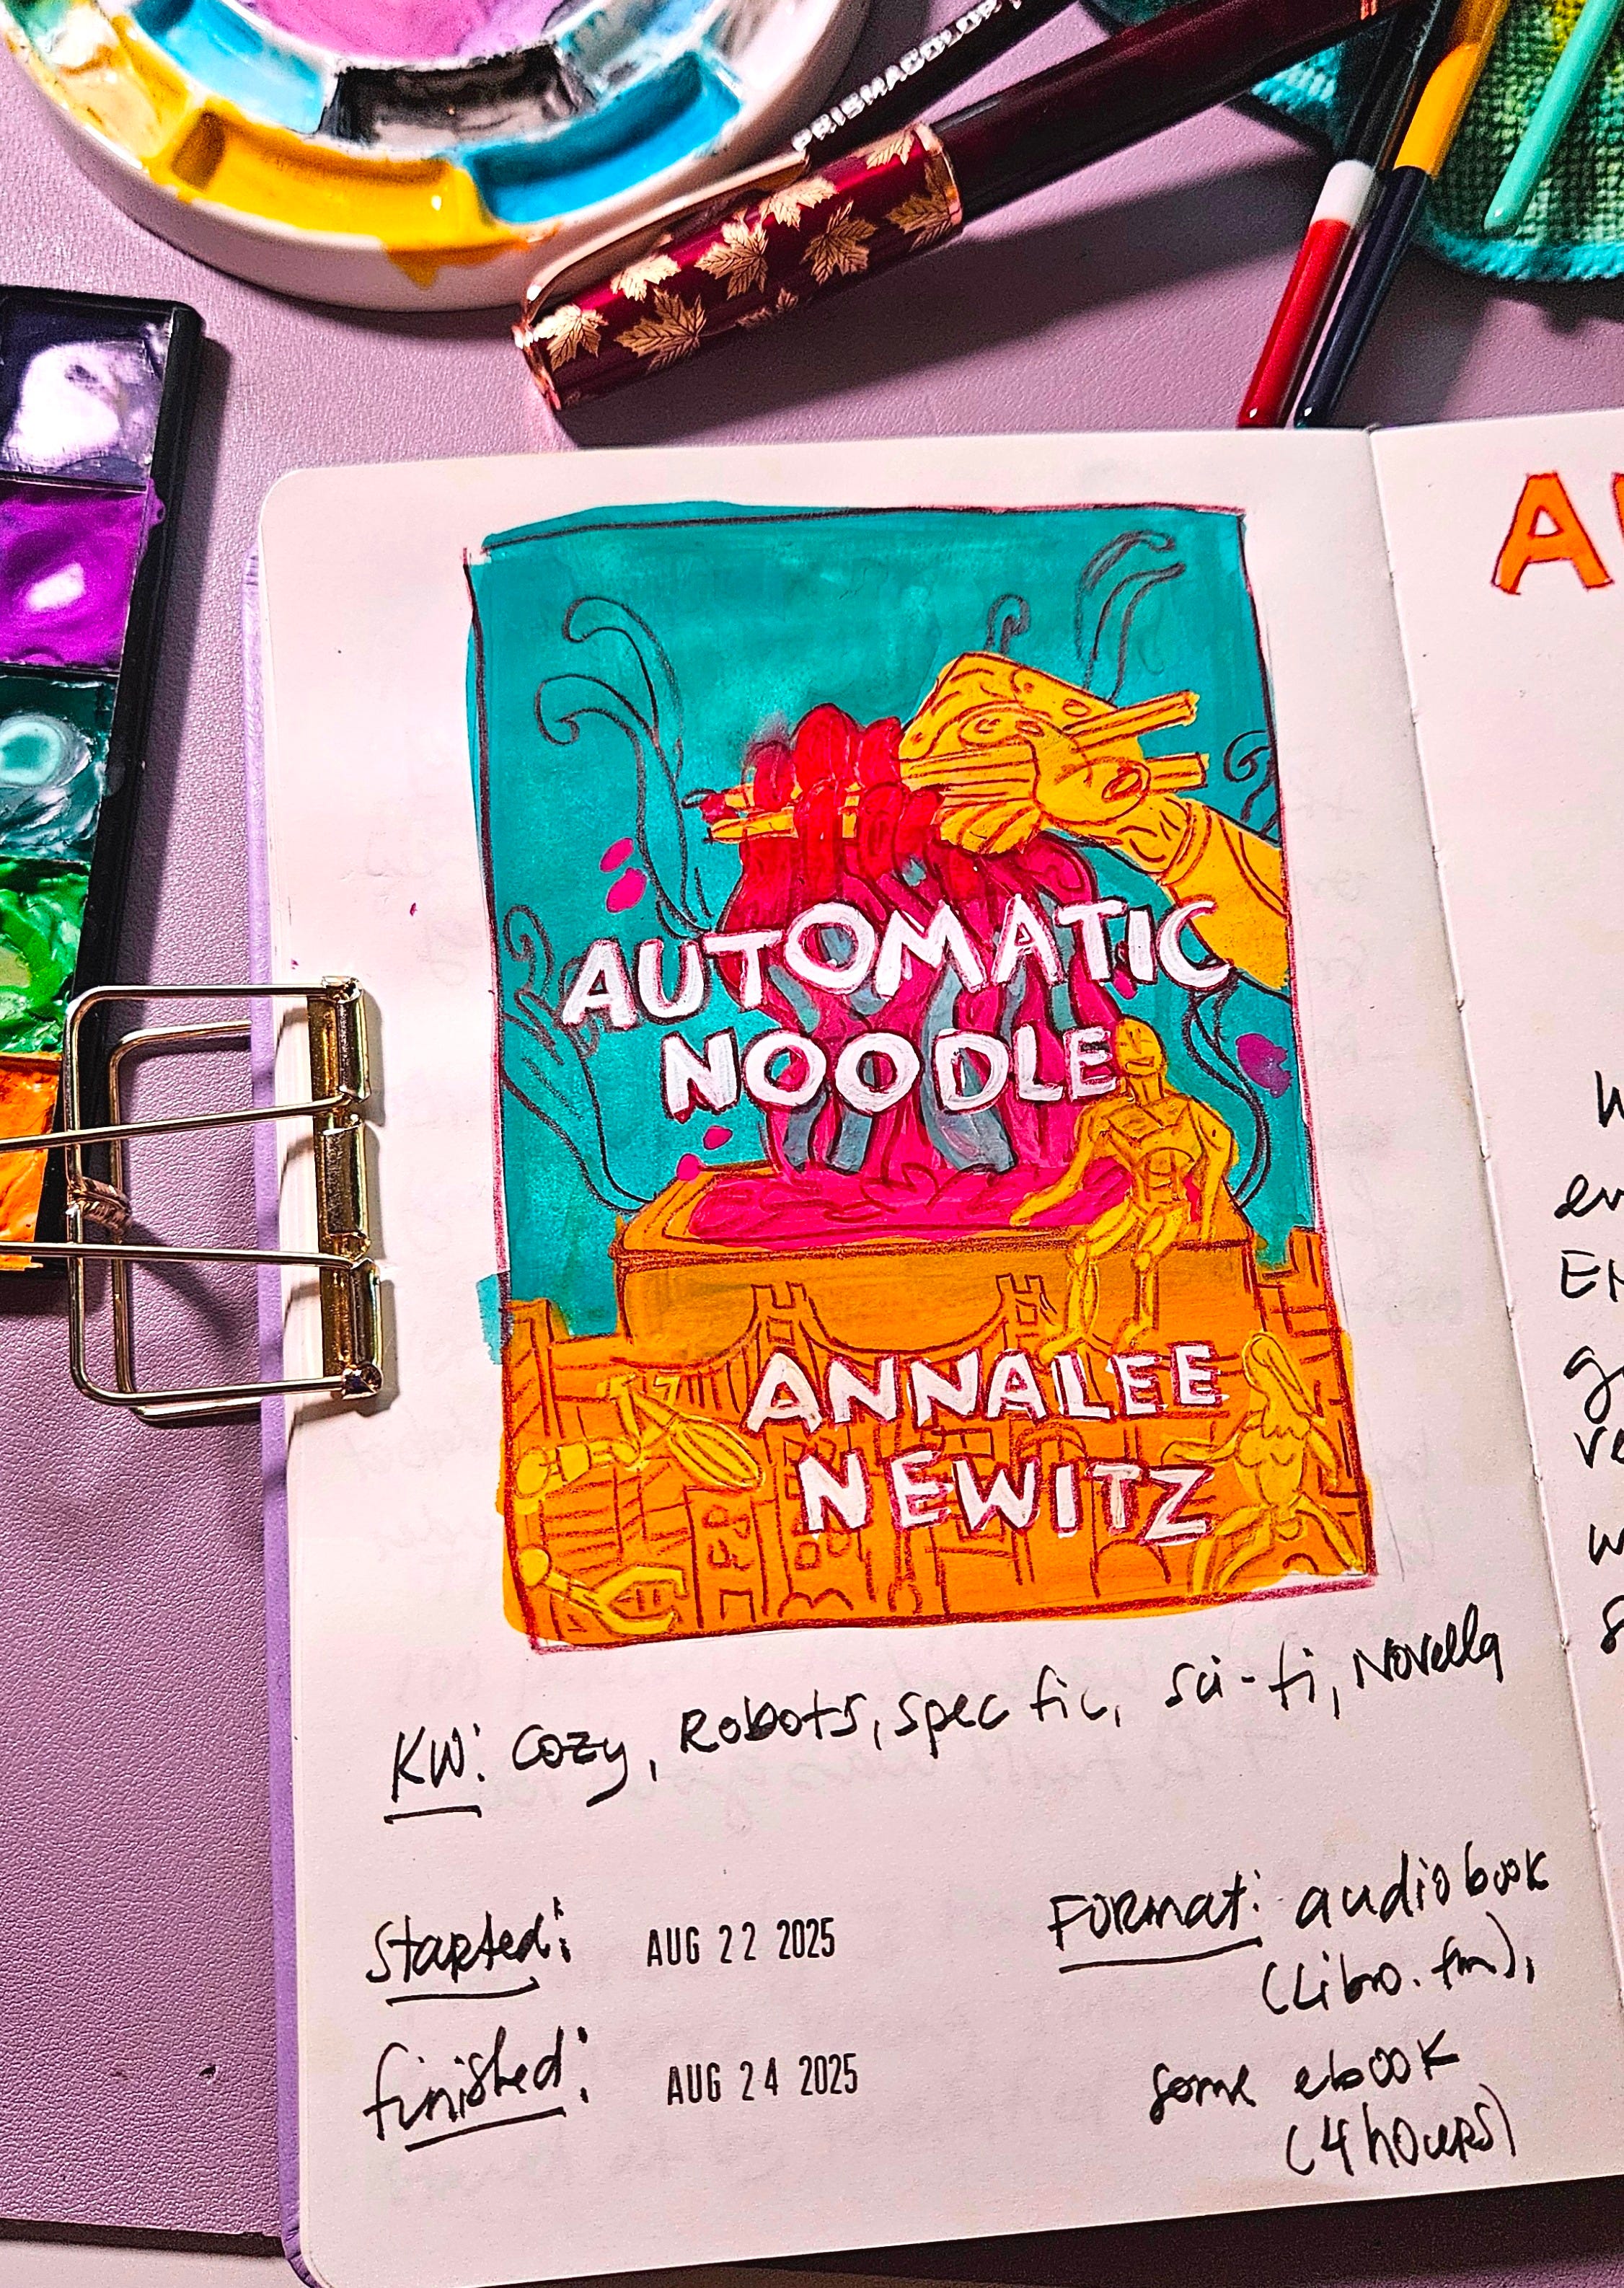 PRISMACOLOR
AUTOMATIC
NOODLE
ANNALEE
NEWITZ
KW: Cozy, Robots, spec fic, sci-fi, Novella
Started: AUG 22 2025
Finished: AUG 24 2025
Format: audiobook
(Libro.fm),
some ebook
(4 hours)
A